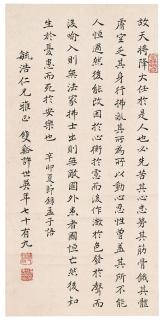 故天將降大任於是人也必先苦其心志勞其筋骨餓其體
膚空乏其身行拂亂其所為所以動心忍性曾益其所不能
人恆過然後能改困於心衡於慮而後作徵於色發於聲而
後喻入則無法家拂士出則無敵國外患者國恆亡然後知
生於憂患而死於安樂也 辛卯夏節錄孟子語
毓浩仁兄雅正 谿許世英年七十有九